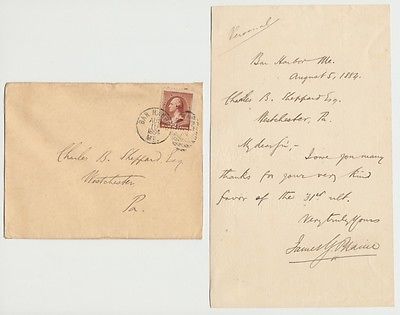 BAR H
1884
ME.
Charles B. Sheppard, Esq
Westchester
Pa.
Personal
Bar Harbor Me.
August 5, 1884.
Charles B. Sheppard Esq.
Westchester, Pa.
My dear Sir,-
I owe you many
thanks for your very kind
favor of the 31st ult.
Very truly Yours
James G. Blaine